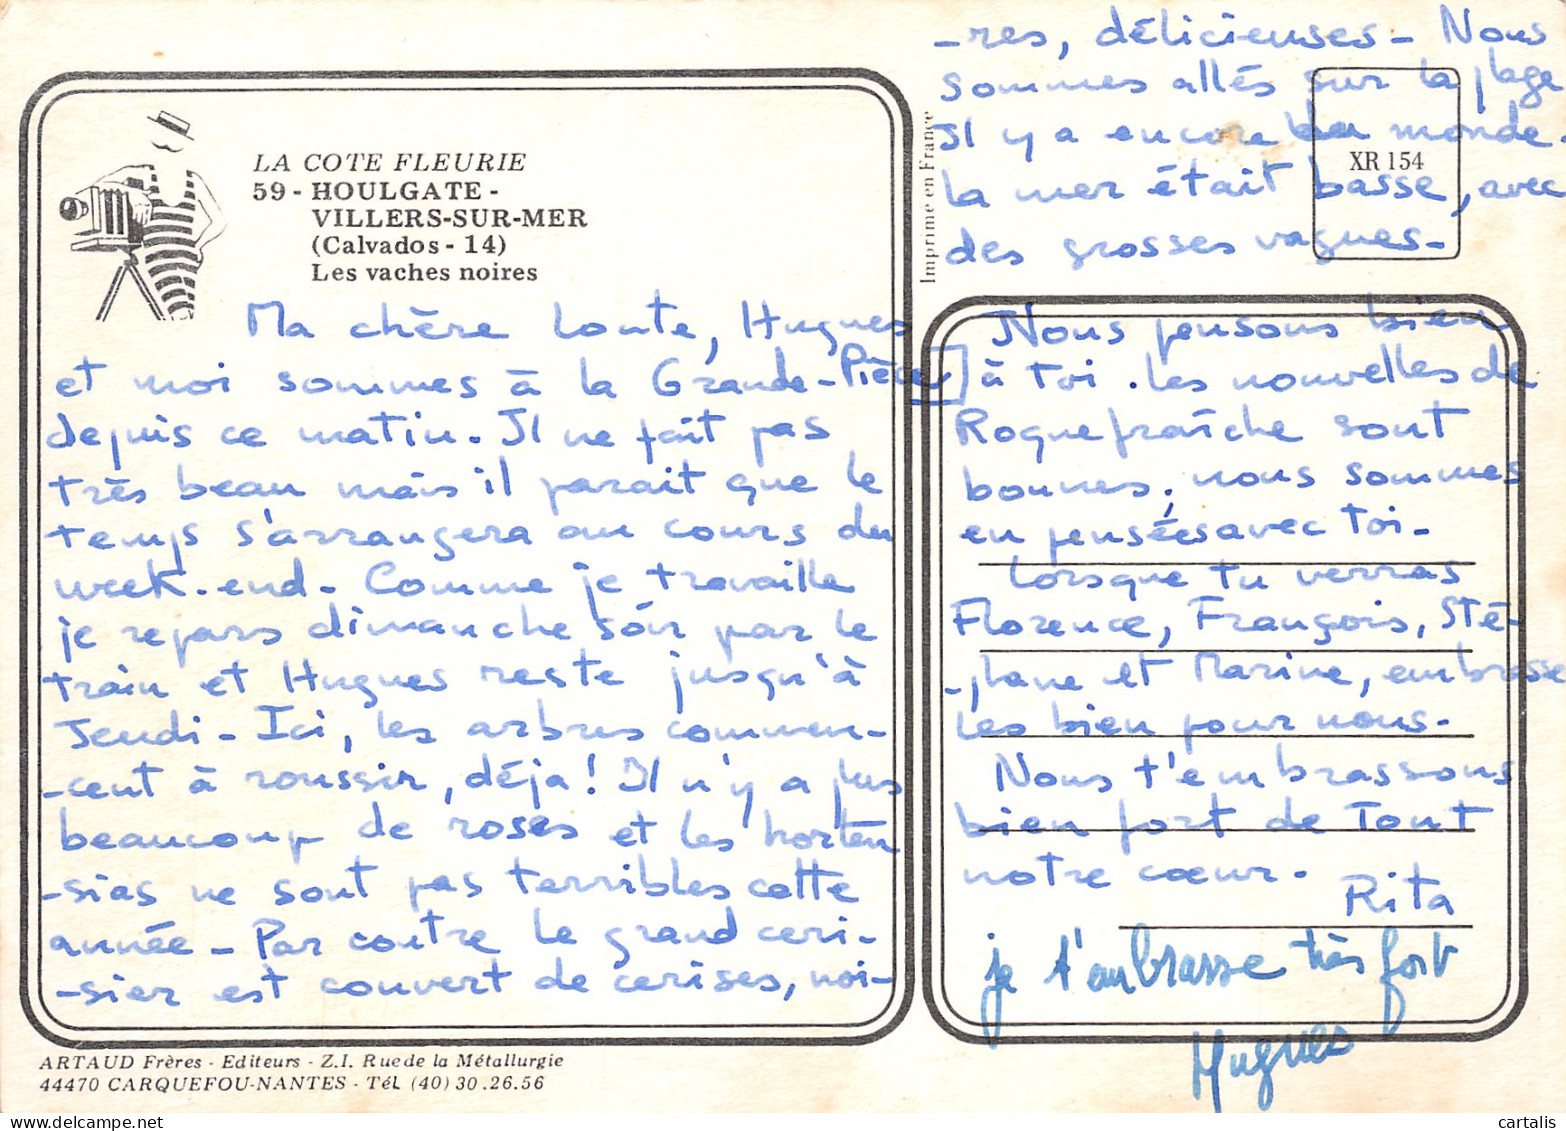 LA COTE FLEURIE
59 - HOULGATE -
VILLERS-SUR-MER
(Calvados - 14)
Les vaches noires
Ma chère Loute, Hugues
et moi sommes à la Grande-Pièce
depuis ce matin. Il ne fait pas
très beau mais il parait que le
temps s'arrangera au cours du
week-end - Comme je travaille
je repars dimanche soir par le
train et Hugues reste jusqu'à
Jeudi - Ici, les arbres commen-
-cent à roussir, déja! Il n'y a plus
beaucoup de roses et les horten
-sias ne sont pas terribles cette
année - Par contre le grand ceri-
-sier est couvert de cerises, noi-
-res, délicieuses - Nous
sommes allés sur la plage
Il y a encore du monde.
la mer était basse, avec
des grosses vagues -
XR 154
Imprimé en France
Nous pensons bien
à toi. Les nouvelles de
Roquefraîche sont
bonnes; nous sommes
en pensées avec toi -
Lorsque tu verras
Florence, François, Sté-
-phane et Marine, embrasse
les bien pour nous -
Nous t'embrassons
bien fort de tout
notre cœur.
Rita
je t'embrasse très fort
Hugues
ARTAUD Frères - Editeurs - Z.I. Rue de la Métallurgie
44470 CARQUEFOU-NANTES - Tél. (40) 30.26.56
cartalis